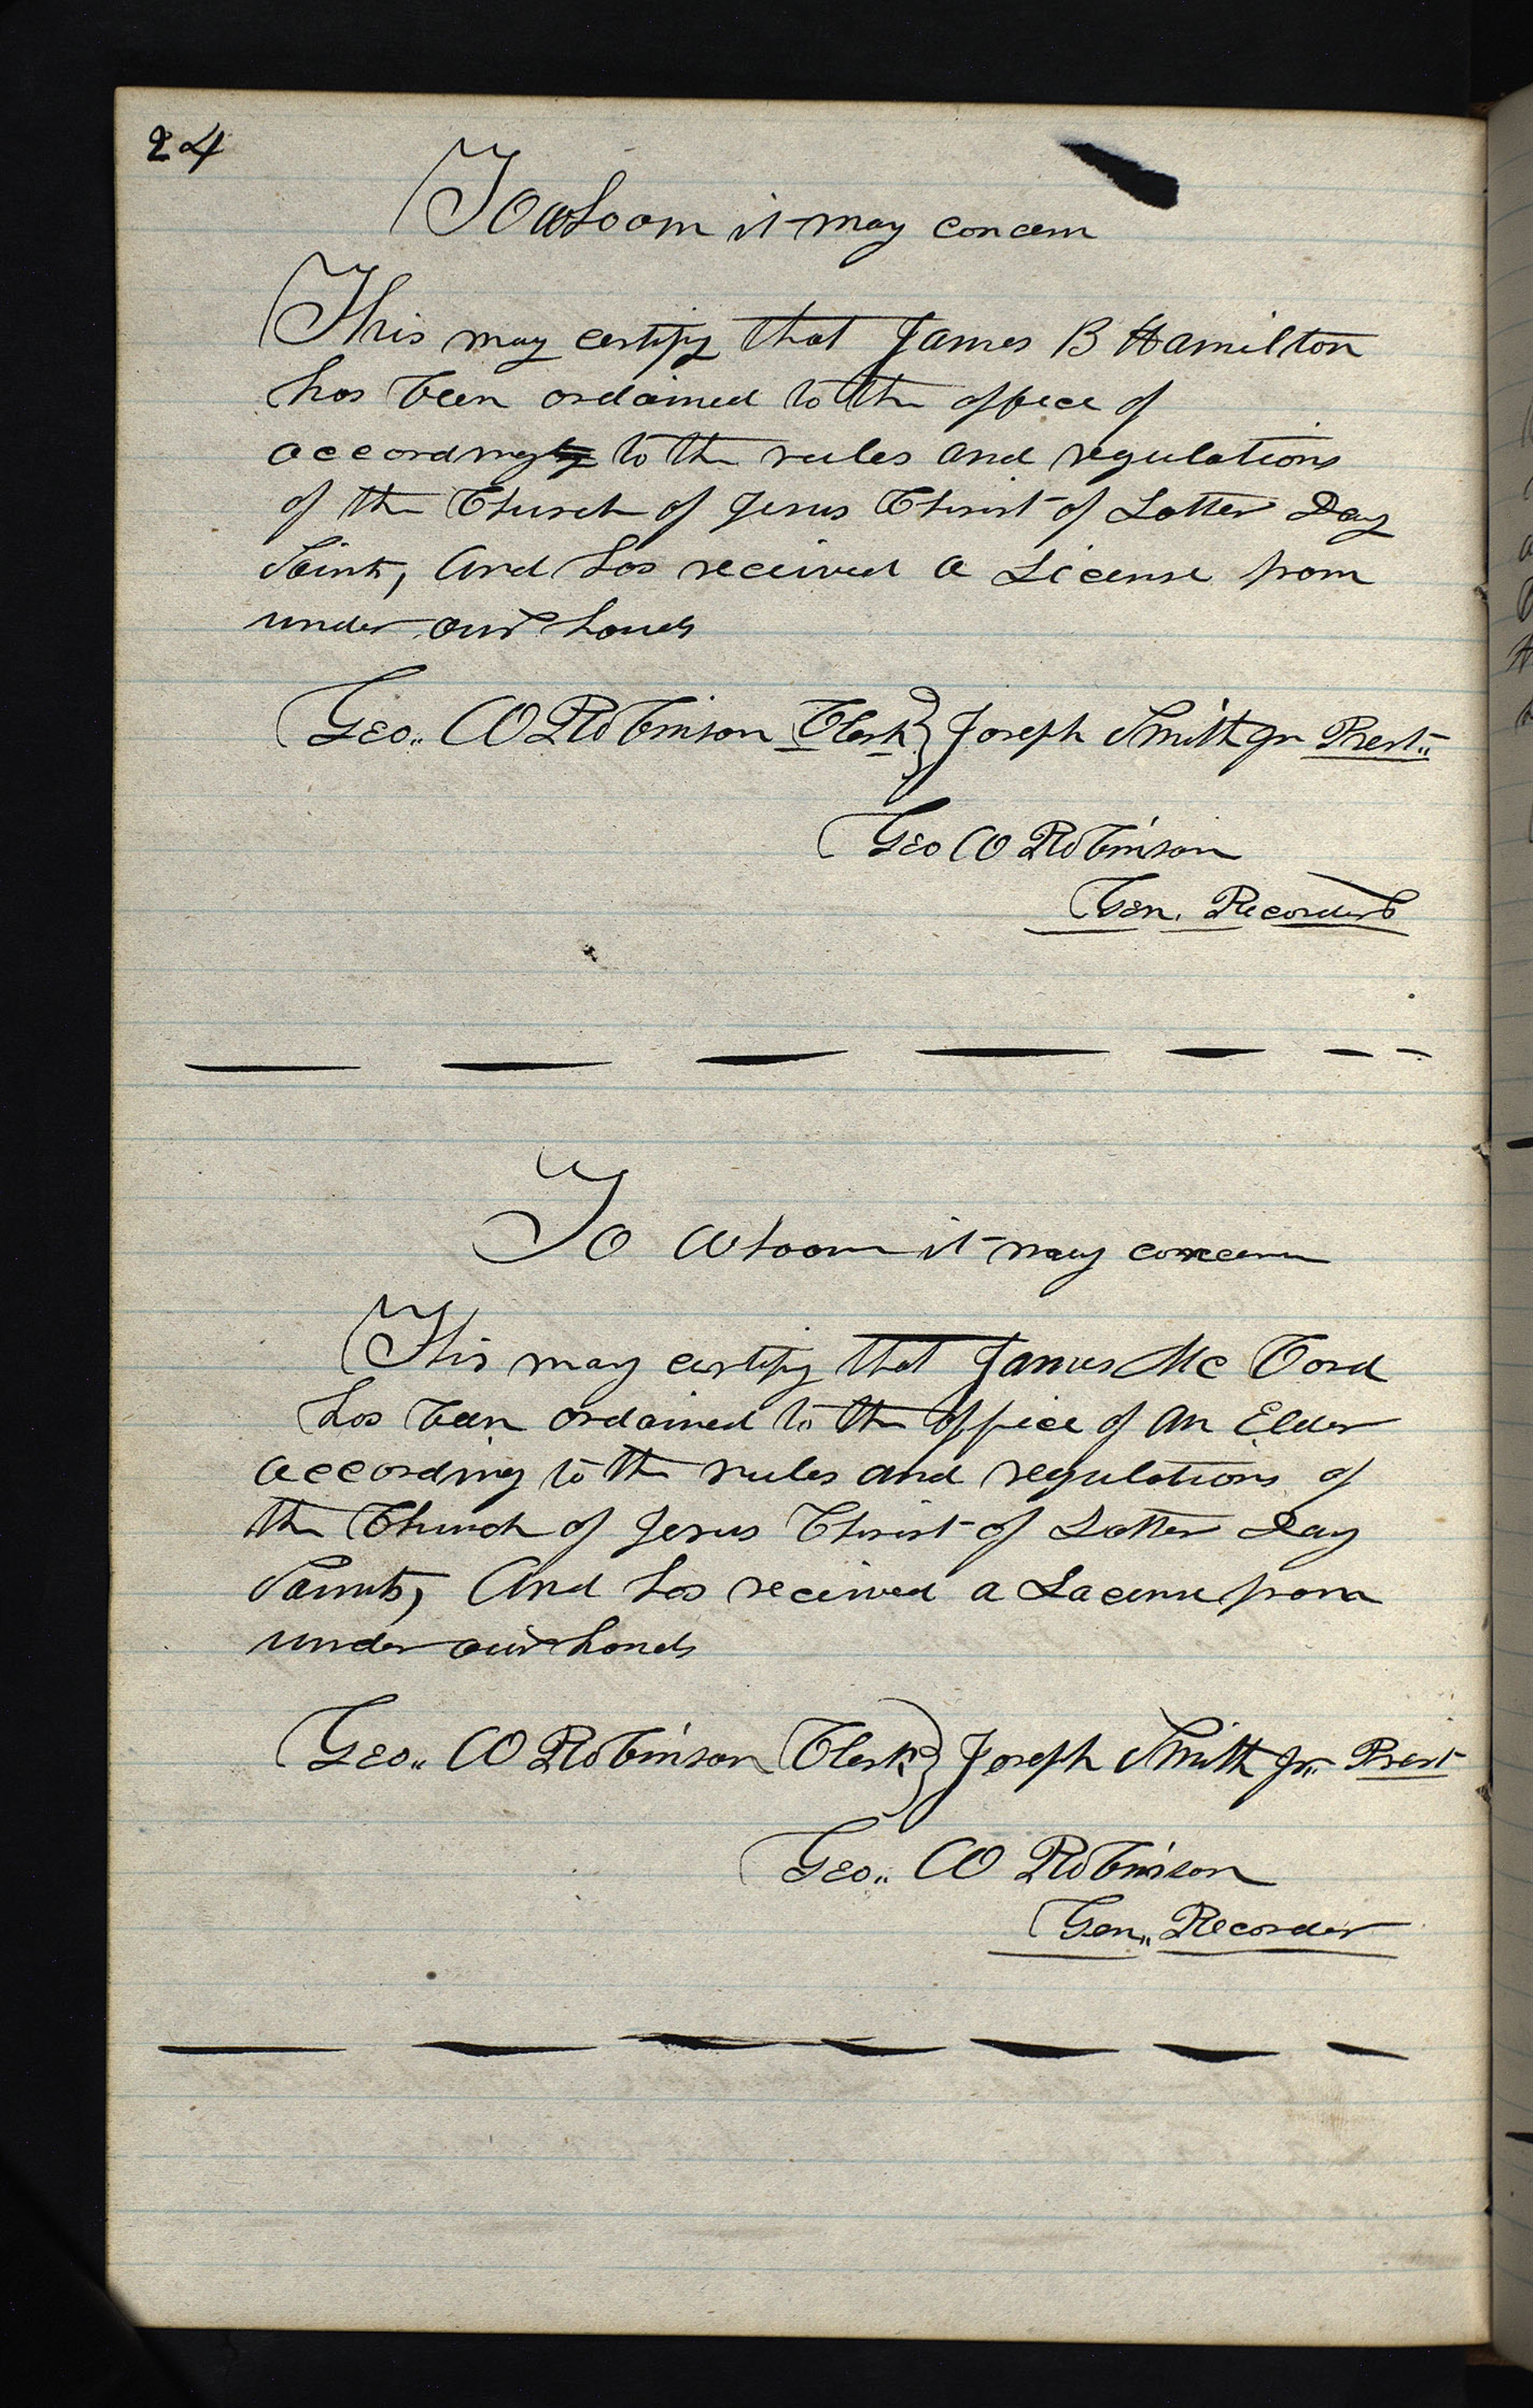 24
To whoom it may concern
This may certify that James B Hamilton
has been ordained to the office of
according to the rules and regulations
of the Church of Jesus Christ of Latter Day
Saints, and has received a License from
under our hands
Geo. W Robinson Clerk } Joseph Smith Jr Prest.
Geo W Robinson
Gen. Recorder
To whoom it may concern
This may certify that James Mc Cord
has been ordained to the office of an Elder
according to the rules and regulations of
the Church of Jesus Christ of Latter Day
Saints, And has received a Lacense from
under our hands
Geo. W Robinson Clerk } Joseph Smith Jr. Prest
Geo. W Robinson
Gen. Recorder